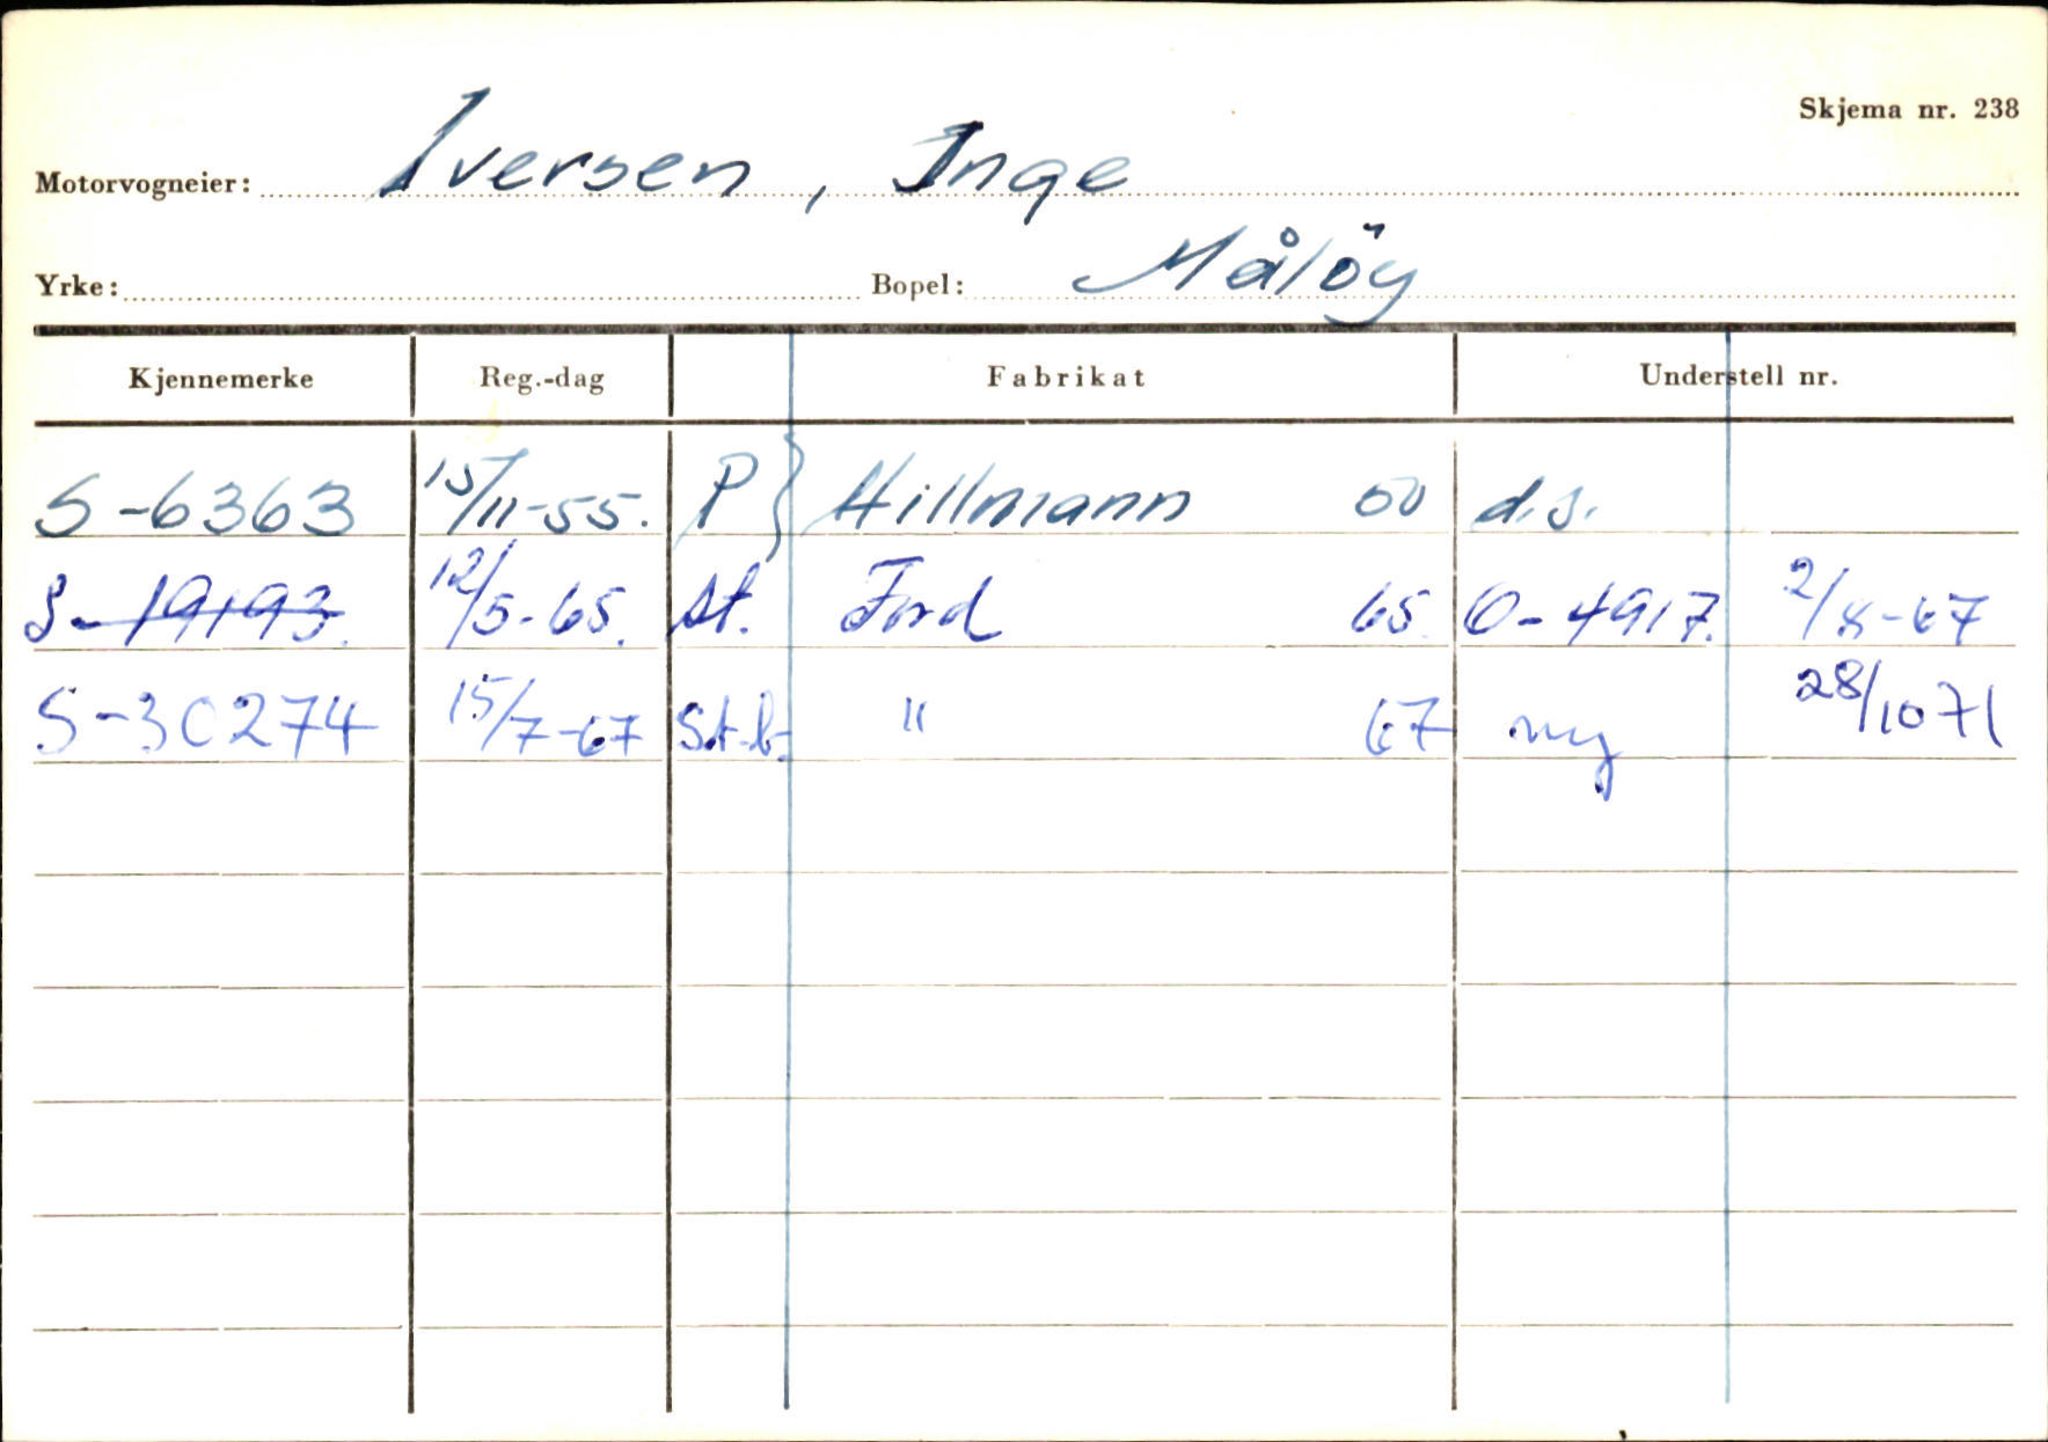 Skjema nr. 238
Motorvogneier: Iversen, Inge
Yrke: Bopel: Målöy
Kjennemerke Reg.-dag Fabrikat Understell nr.
S-6363 15/11-55. P } Hillmann 50 d.s.
S-19193. 12/5-65. st. Ford 65. O-4917. 2/8-67
S-30274 15/7-67 St.b. " 67 ny 28/10 71